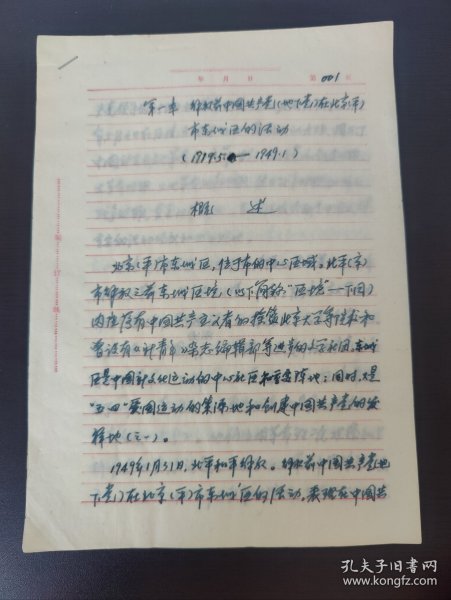 年 月 日 第 001
第一章 解放前中国共产党(地下党)在北京(平)
市东城区的活动
(1919.5 — 1949.1)
概 述
北京(平)市东城区,位于市的中心区域。北平(京)
市解放之前东城区境(以下简称"区境"—下同)
内座落有中国共产主义者的摇篮北京大学等院校和
曾设有《新青年》杂志编辑部等进步的文学社团。东城
区是中国新文化运动的中心社区和重要阵地;同时,又是
"五四"爱国运动的策源地和创建中国共产党的发
祥地(之一)。
1949年1月31日,北平和平解放。解放前中国共产党(地
下党)在北京(平)市东城区的活动,表现在中国共
孔夫子旧书网
www.kongfz.com